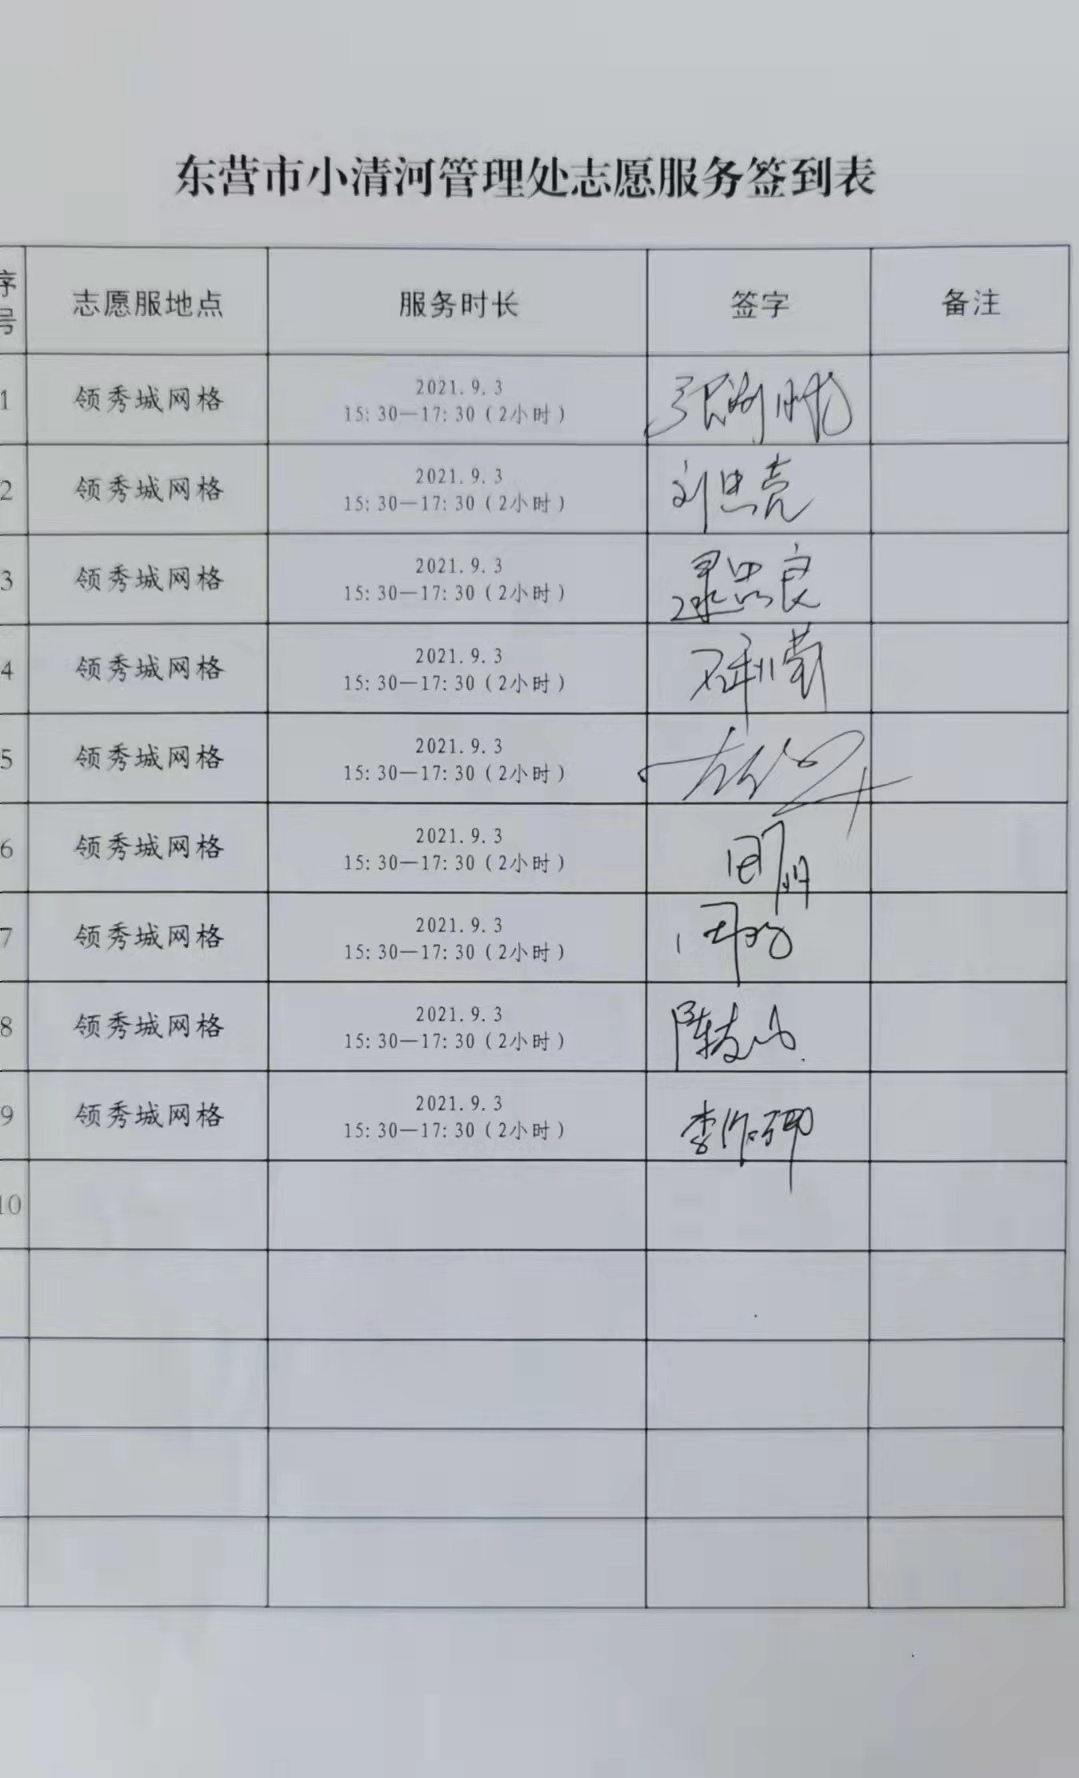 东营市小清河管理处志愿服务签到表
序号 志愿服地点 服务时长 签字 备注
1 领秀城网格 2021.9.3
15:30—17:30(2小时)
2 领秀城网格 2021.9.3 刘忠亮
15:30—17:30(2小时)
3 领秀城网格 2021.9.3
15:30—17:30(2小时)
4 领秀城网格 2021.9.3
15:30—17:30(2小时)
5 领秀城网格 2021.9.3
15:30—17:30(2小时)
6 领秀城网格 2021.9.3
15:30—17:30(2小时)
7 领秀城网格 2021.9.3
15:30—17:30(2小时)
8 领秀城网格 2021.9.3
15:30—17:30(2小时)
9 领秀城网格 2021.9.3
15:30—17:30(2小时)
10